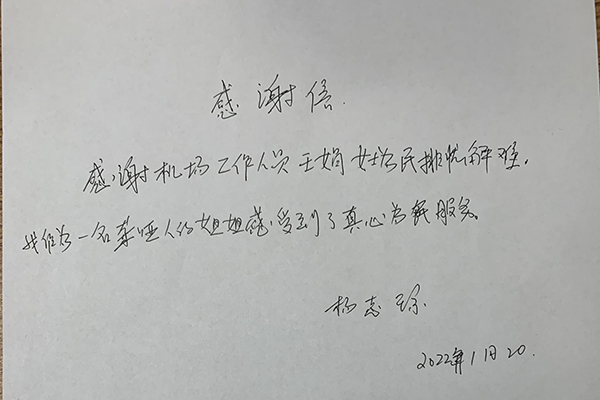 感谢信
感谢机场工作人员王娟女士为民排忧解难。
我作为一名聋哑人的姐姐感受到了真心为民服务。
杨志琼
2022年1月20.